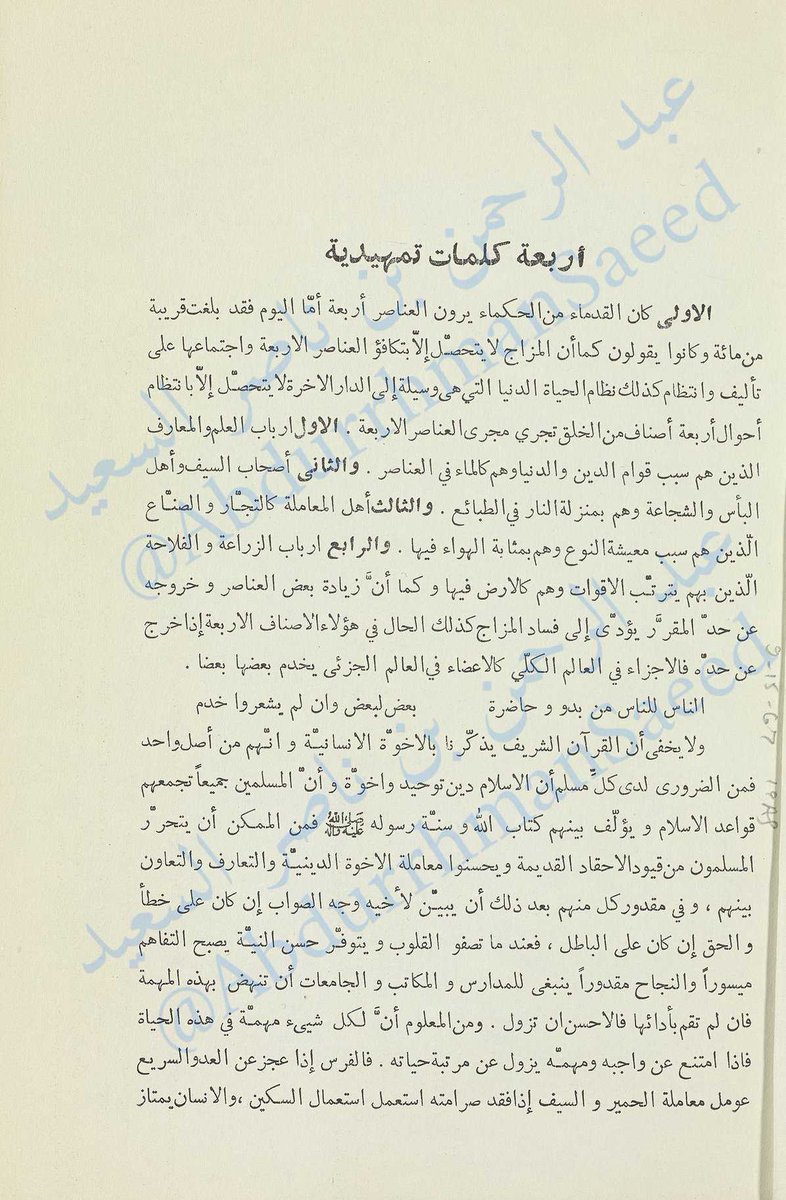 أربعة كلمات تمهيدية
الاولي كان القدماء من الحكماء يرون العناصر أربعة أمّا اليوم فقد بلغت قريبة
من مائة و كانوا يقولون كما أن المزاج لا يتحصّل إلاّ بتكافؤ العناصر الاربعة واجتماعها على
تأليف وانتظام كذلك نظام الحياة الدنيا التي هى وسيلة إلى الدار الاخرة لا يتحصّل إلاّ بانتظام
أحوال أربعة أصناف من الخلق تجري مجرى العناصر الاربعة . الاول ارباب العلم والمعارف
الذين هم سبب قوام الدين والدنيا وهم كالماء في العناصر . والثانى أصحاب السيف وأهل
البأس والشجاعة وهم بمنزلة النار في الطبائع . والثالث أهل المعاملة كالتجّار و الصنّاع
الّذين هم سبب معيشة النوع وهم بمثابة الهواء فيها . والرابع ارباب الزراعة و الفلاحة
الّذين بهم يترتّب الاقوات وهم كالارض فيها و كما أنَّ زيادة بعض العناصر و خروجه
عن حدّ المقرَّر يؤدّى إلى فساد المزاج كذلك الحال في هؤلاء الاصناف الاربعة إذا خرج
عن حدّه فالاجزاء في العالم الكلّي كالاعضاء في العالم الجزئى يخدم بعضها بعضا .
الناس للناس من بدو و حاضرة بعض لبعض وان لم يشعروا خدم
ولا يخفى أن القرآن الشريف يذكّرنا بالاخوّة الانسانيّة و انّهم من أصل واحد
فمن الضرورى لدى كلِّ مسلم أن الاسلام دين توحيد واخوّة و أنّ المسلمين جميعاً تجمعهم
قواعد الاسلام و يؤلّف بينهم كتاب الله و سنّة رسوله ﷺ فمن الممكن أن يتحرّر
المسلمون من قيود الاحقاد القديمة و يحسنوا معاملة الاخوة الدينيّة والتعارف والتعاون
بينهم ، و في مقدور كل منهم بعد ذلك أن يبيّن لأخيه وجه الصواب إن كان على خطأ
و الحق إن كان على الباطل ، فعند ما تصفو القلوب و يتوفّر حسن النيّة يصبح التفاهم
ميسوراً والنجاح مقدوراً ينبغى للمدارس و المكاتب و الجامعات أن تنهض بهذه المهمة
فان لم تقم بأدائها فالاحسن ان تزول . ومن المعلوم أنَّ لكل شيىء مهمّة في هذه الحياة
فاذا امتنع عن واجبه ومهمّه يزول عن مرتبة حياته . فالفرس إذا عجز عن العدو السريع
عومل معاملة الحمير و السيف إذا فقد صرامته استعمل استعمال السكين ، والانسان يمتاز
عبد الرحمن بن ناصر السعيد
@AbdurrhmanSaeed
عبد الرحمن بن ناصر السعيد
@AbdurrhmanSaeed